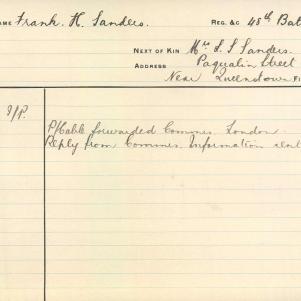 NAME Frank. H. Sanders. REG. &c 48th Bat
NEXT OF KIN Mrs S. S Sanders.
ADDRESS Street
Near Queenstown
I/P.
P/Cable forwarded Commrs. London.
Reply from Commrs. Information